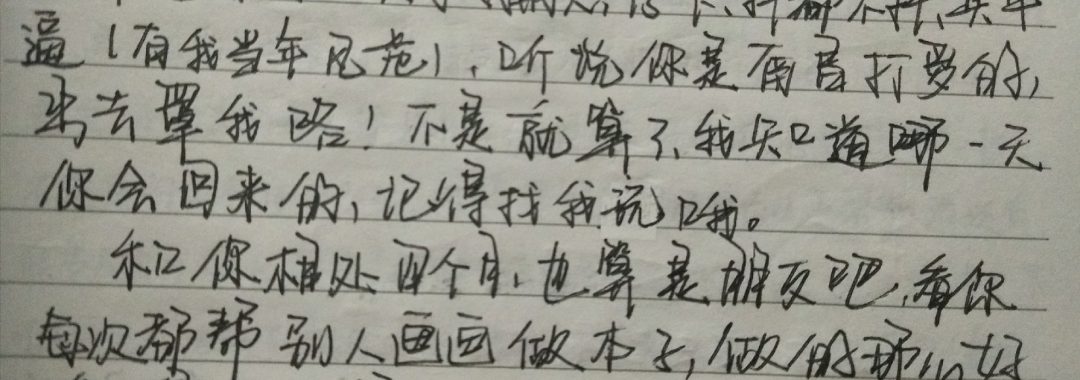 都不
逼(有我当年风范),听说你是有官打爱的,
出去罩我咯!不是就算了,我知道哪一天
你会回来的,记得找我玩哦。
和你相处四个月,也算是朋友吧,看你
每次都帮别人画画做本子,做的那么好